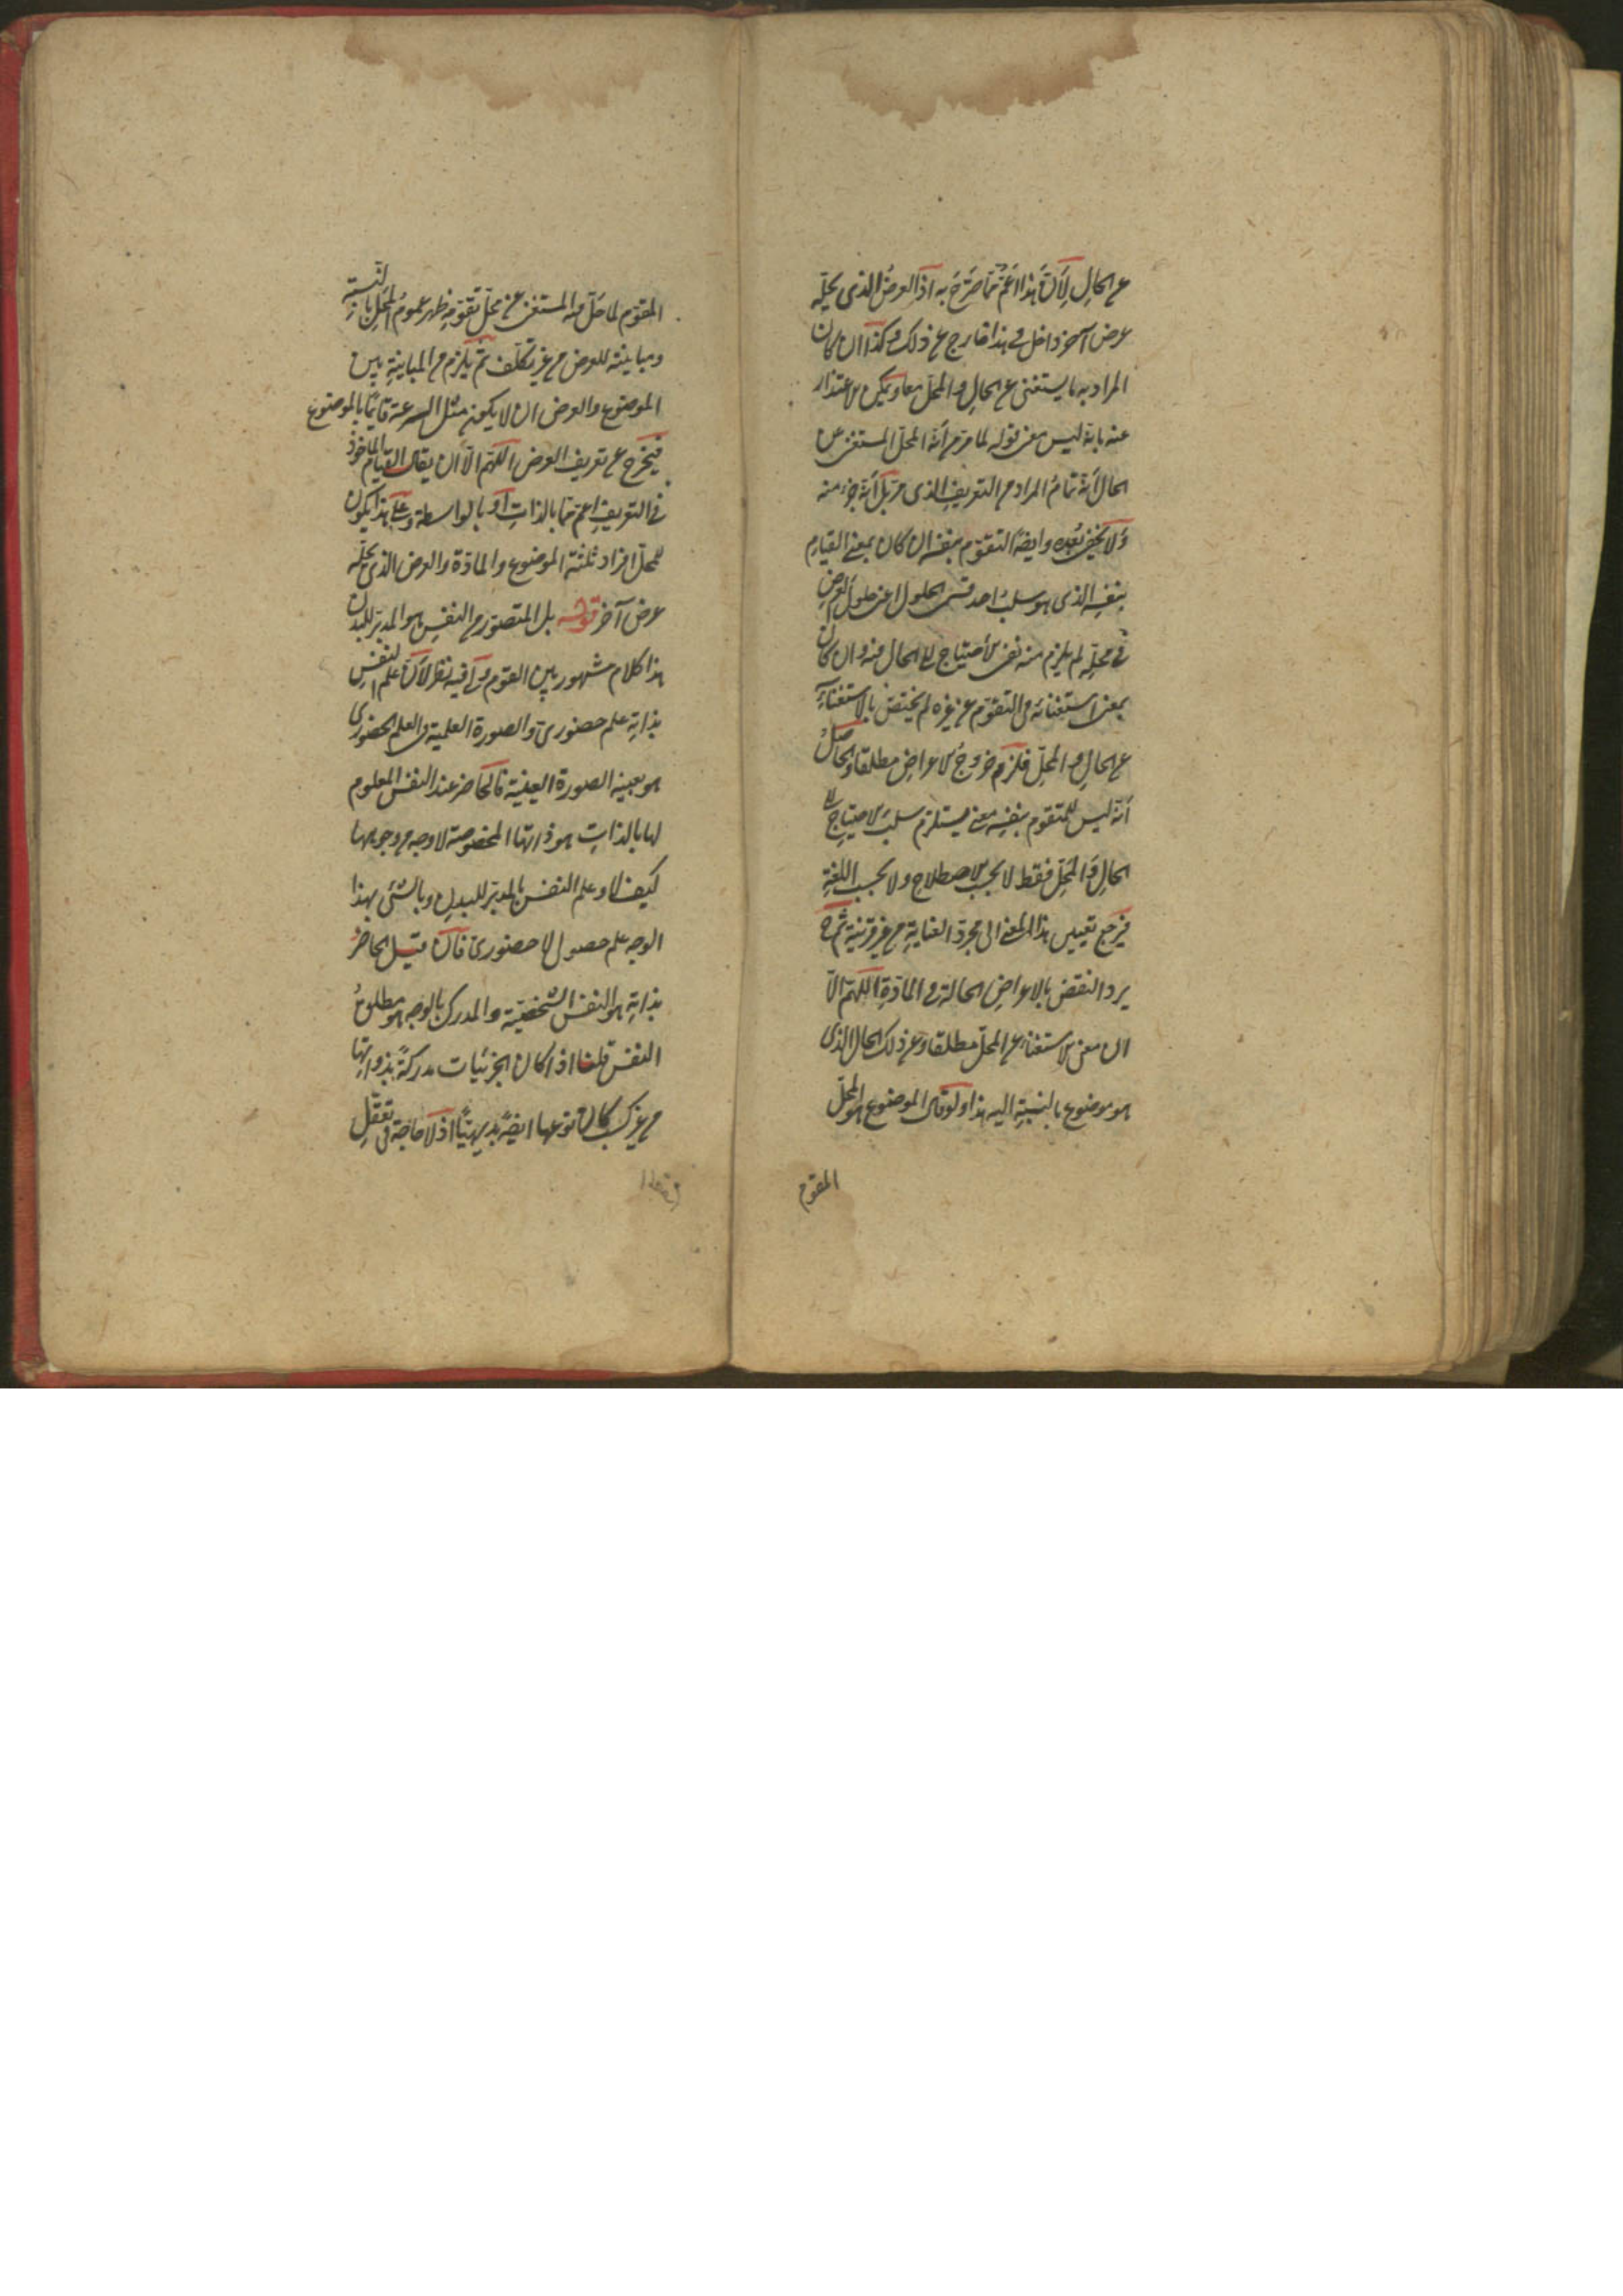 عن الحال لِأنّ هذا أعمّ مما صَرَّحَ به اذ العرضُ الذى يحلّه
عرض آخر داخل فى هذا خارج عن ذلك وكذا ان كان
المراد به ما يستغنى عن الحالِ والمحلّ معا ويمكن الاعتذار
عنه بانه ليس معنى قوله لما مرّ من أنّه المحلّ المستغنى عن
الحال أنّه تمامُ المراد من التعريفِ الذى مرّ بل أنّه جزء منه
ولا يخفى بُعده وايضًا التقوّم بنفسه ان كان بمعنى القيام
بنفسِه الذى هو سلبُ احد قسمى الحلول اعنى حلول العرضِ
فى محلّه لم يلزم منه نفى الأحتياج الى الحال منه وان كان
بمعنى استغنائه فى التقوّم عن غيره لم يختصّ بالاستغناءِ
عن الحالِ والمحلّ فلزم خروجُ الاعراضِ مطلقا والحاصلُ
أنّه ليس للمتقوم بنفسِه معنى يستلزم سلبَ الاحتياج الى
الحالِ والمَحلّ فقط لا بحسب الاصطلاح ولا بحسب اللغةِ
فيرجع تعيين هذا المعنى الى مجرد العناية من غير قرينة ثم ح
يرد النقض بالاعراضِ الحالة فى المادّةِ اللّهمّ الّا
ان معنى الاستغناء عن المحلّ مطلقا وعن ذلك الحال الذى
هو موضوع بالنسبةِ اليه هذا ولو قال الموضوع هو المحلّ
المقوم
المقوّم لما حَلّ فيه المستغنى عن محلّ تقوّمه ظهر عموم المحلّ بالنّسبة
ومباينته للعرض من غير تكلّف ثمّ يلزم من المباينةِ بين
الموضوع والعرض ان لا يكون مثل السرعة قايمًا بالموضوع
فيخرج عن تعريف العرض اللّهمّ الّا ان يقال القيام الماخوذ
فى التعريفِ اعمّ ممّا بالذاتِ أو بالواسطة وعلى هذا يكون
للمحلّ افراد ثلثة الموضوع والمادّة والعرض الذى يحلّه
عرض آخر قوله بل المتصوّر من النفسِ هو المدبّر للبدن
هذا كلام مشهور بين القوم ولى فيه نظر لأنّ علم النفسِ
بذاتِه علم حضورىّ والصورة العلمية فى العلم الحضورى
هو بعينه الصورة العينية فالحاضر عند النفس المعلوم
لها بالذاتِ هو ذاتها المخصوصة لا وجه من وجوهها
كيف لا وعلم النفس بالمدبّر للبدنِ وبالشئ بهذا
الوجه علم حصولى لا حضورىّ فان قيل الحاضرُ
بذاتِه هو النفس الشخصيّة والمدرك بالوجه هو مطلقُ
النفس قلنا اذا كان الجزئيات مدركةً بذواتِها
من غير كسب كان نوعها ايضًا بديهيّا اذ لا حاجة فى تعقّل